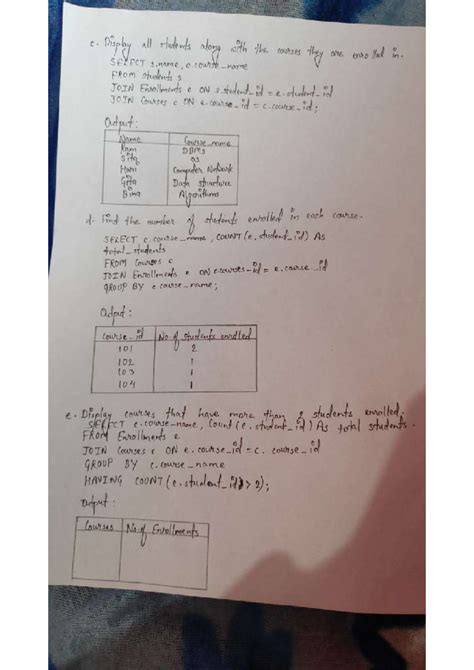 c. Display all students along with the courses they are enrolled in.
SELECT s.name, c.course_name
FROM students s
JOIN Enrollments e ON s.student_id = e.student_id
JOIN Courses c ON e.course_id = c.course_id;
Output:
Name Course_name
Ram DBMS
Sita OS
Hari Computer Network
Gita Data structure
Bina Algorithms
d. Find the number of students enrolled in each course.
SELECT c.course_name, COUNT(e.student_id) As
total_students
FROM Courses c
JOIN Enrollments e ON c.course_id = e.course_id
GROUP BY c.course_name;
Output:
Course_id No. of students enrolled
101 2
102 1
103 1
104 1
e. Display courses that have more than 2 students enrolled.
SELECT c.course_name, Count(e.student_id) As total students.
FROM Enrollments e
JOIN Courses c ON e.course_id = c.course_id
GROUP BY c.course_name
HAVING COUNT(e.student_id) > 2);
Output:
Courses No. of Enrollments